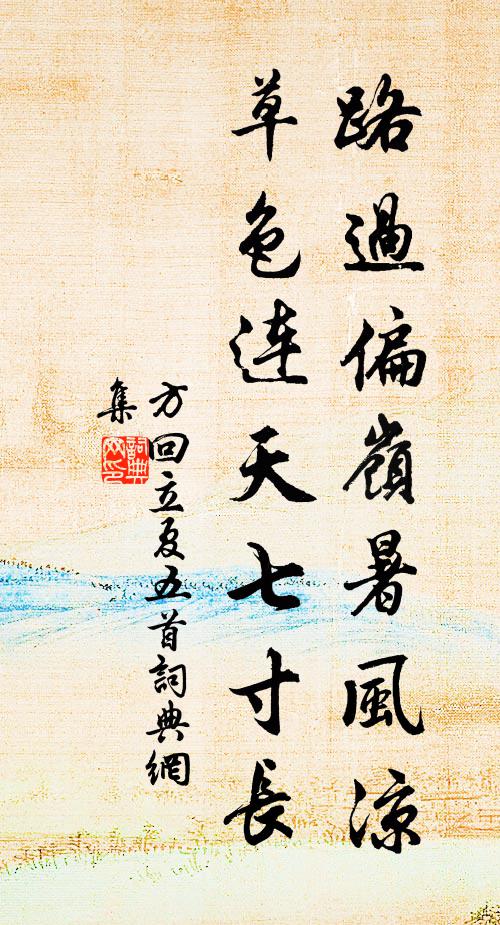 路過偏嶺暑風涼
草色連天七寸長
方回立夏五首詞典網
集
詞典網印